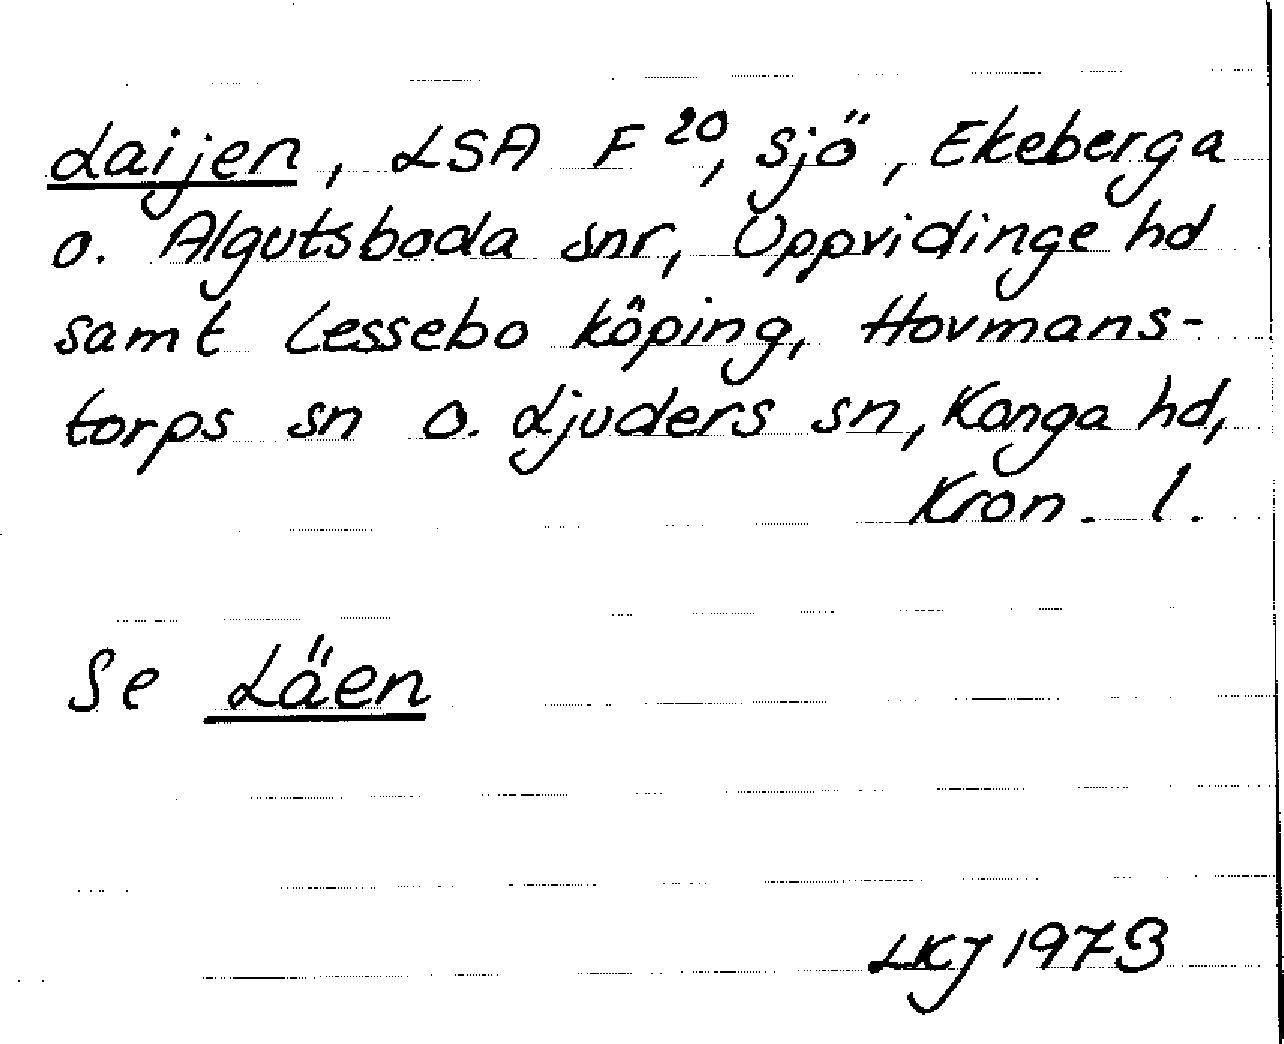 Laijen, LSA F 20, sjö, Ekeberga
o. Algutsboda snr, Uppvidinge hd
samt Lessebo köping, Hovmans-
torps sn o. Ljuders sn, Konga hd,
Kron. l.
Se Läen
LKJ 1973